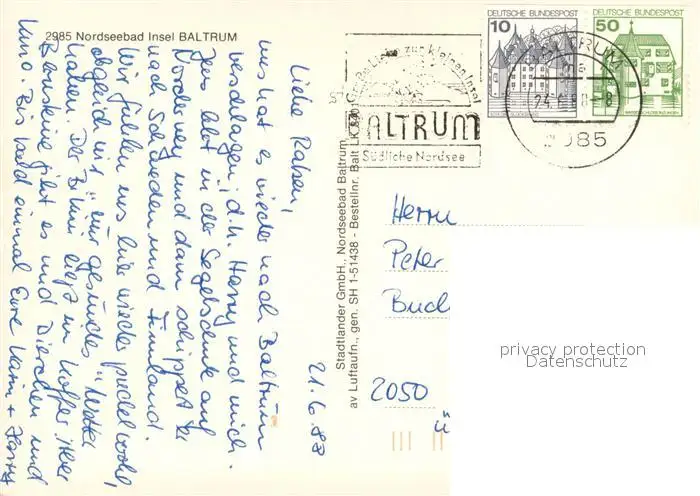 2985 Nordseebad Insel BALTRUM
21.6.88
Liebe Raben,
uns hat es wieder nach Baltrum
verschlagen, d.h. Harry und mich.
Jens lebt in der Segelschule auf
Norderney und dann schippert er
nach Schweden und Finnland.
Wir fühlen uns hier wieder pudelwohl,
obgleich wir "nur gesundes" Wetter
haben. Der Bikini liegt im Koffer
Bernsteine gibt es und Dierchen und
Bis bald einmal Eure Karin + Harry
Stadtlander GmbH., Nordseebad Baltrum
av Luftaufn., gen. SH 1-51438 - Bestellnr. Balt LK 8401
Große Liebe zur kleinen Insel
BALTRUM
Südliche Nordsee
10 DEUTSCHE BUNDESPOST
50 DEUTSCHE BUNDESPOST
BALTRUM
-8
2985
Herrn
Peter
Buch
2050
privacy protection
Datenschutz